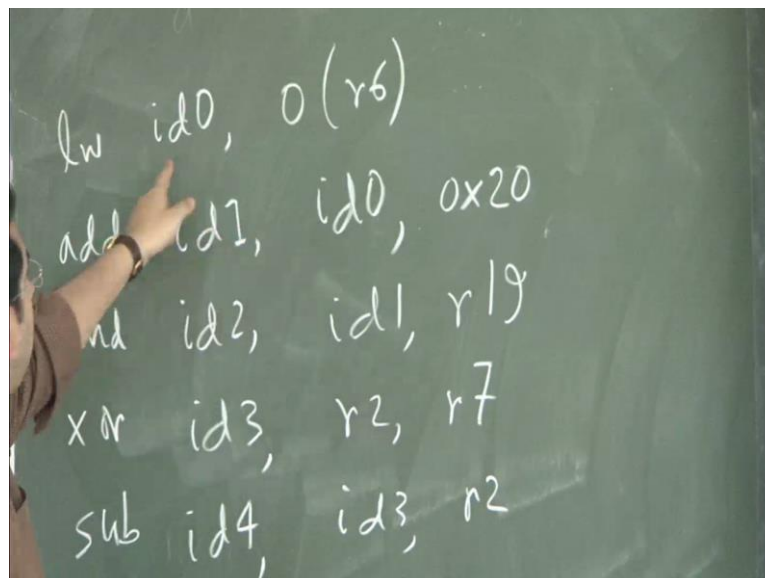 lw id0, 0(r6)
add id1, id0, 0x20
and id2, id1, r19
xor id3, r2, r7
sub id4, id3, r2